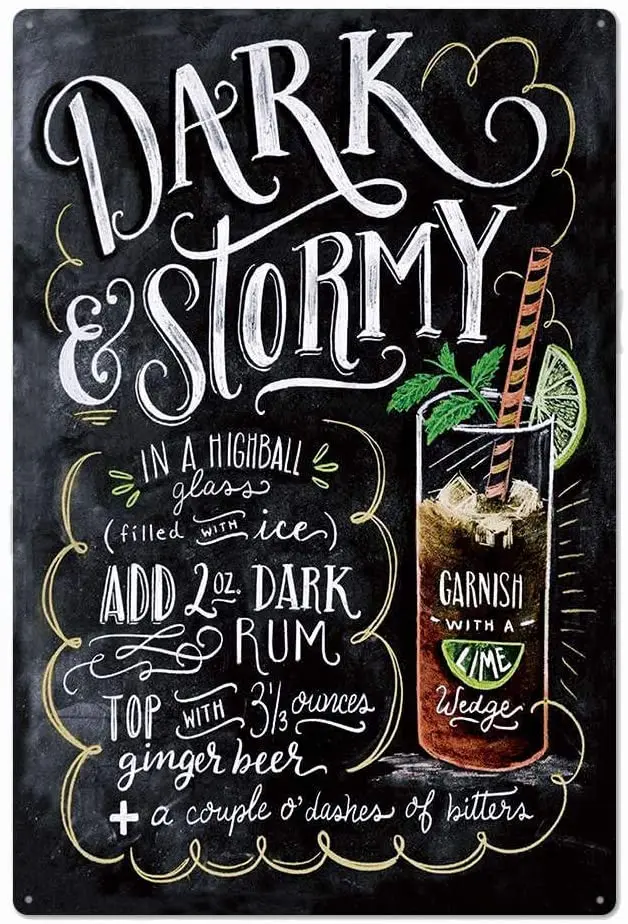 DARK
& STORMY
IN A HIGHBALL
glass
(filled WITH ice)
ADD 2oz. DARK
RUM
TOP WITH 3 1/3 ounces
ginger beer
+ a couple o'dashes of bitters
GARNISH
WITH A
LIME
Wedge